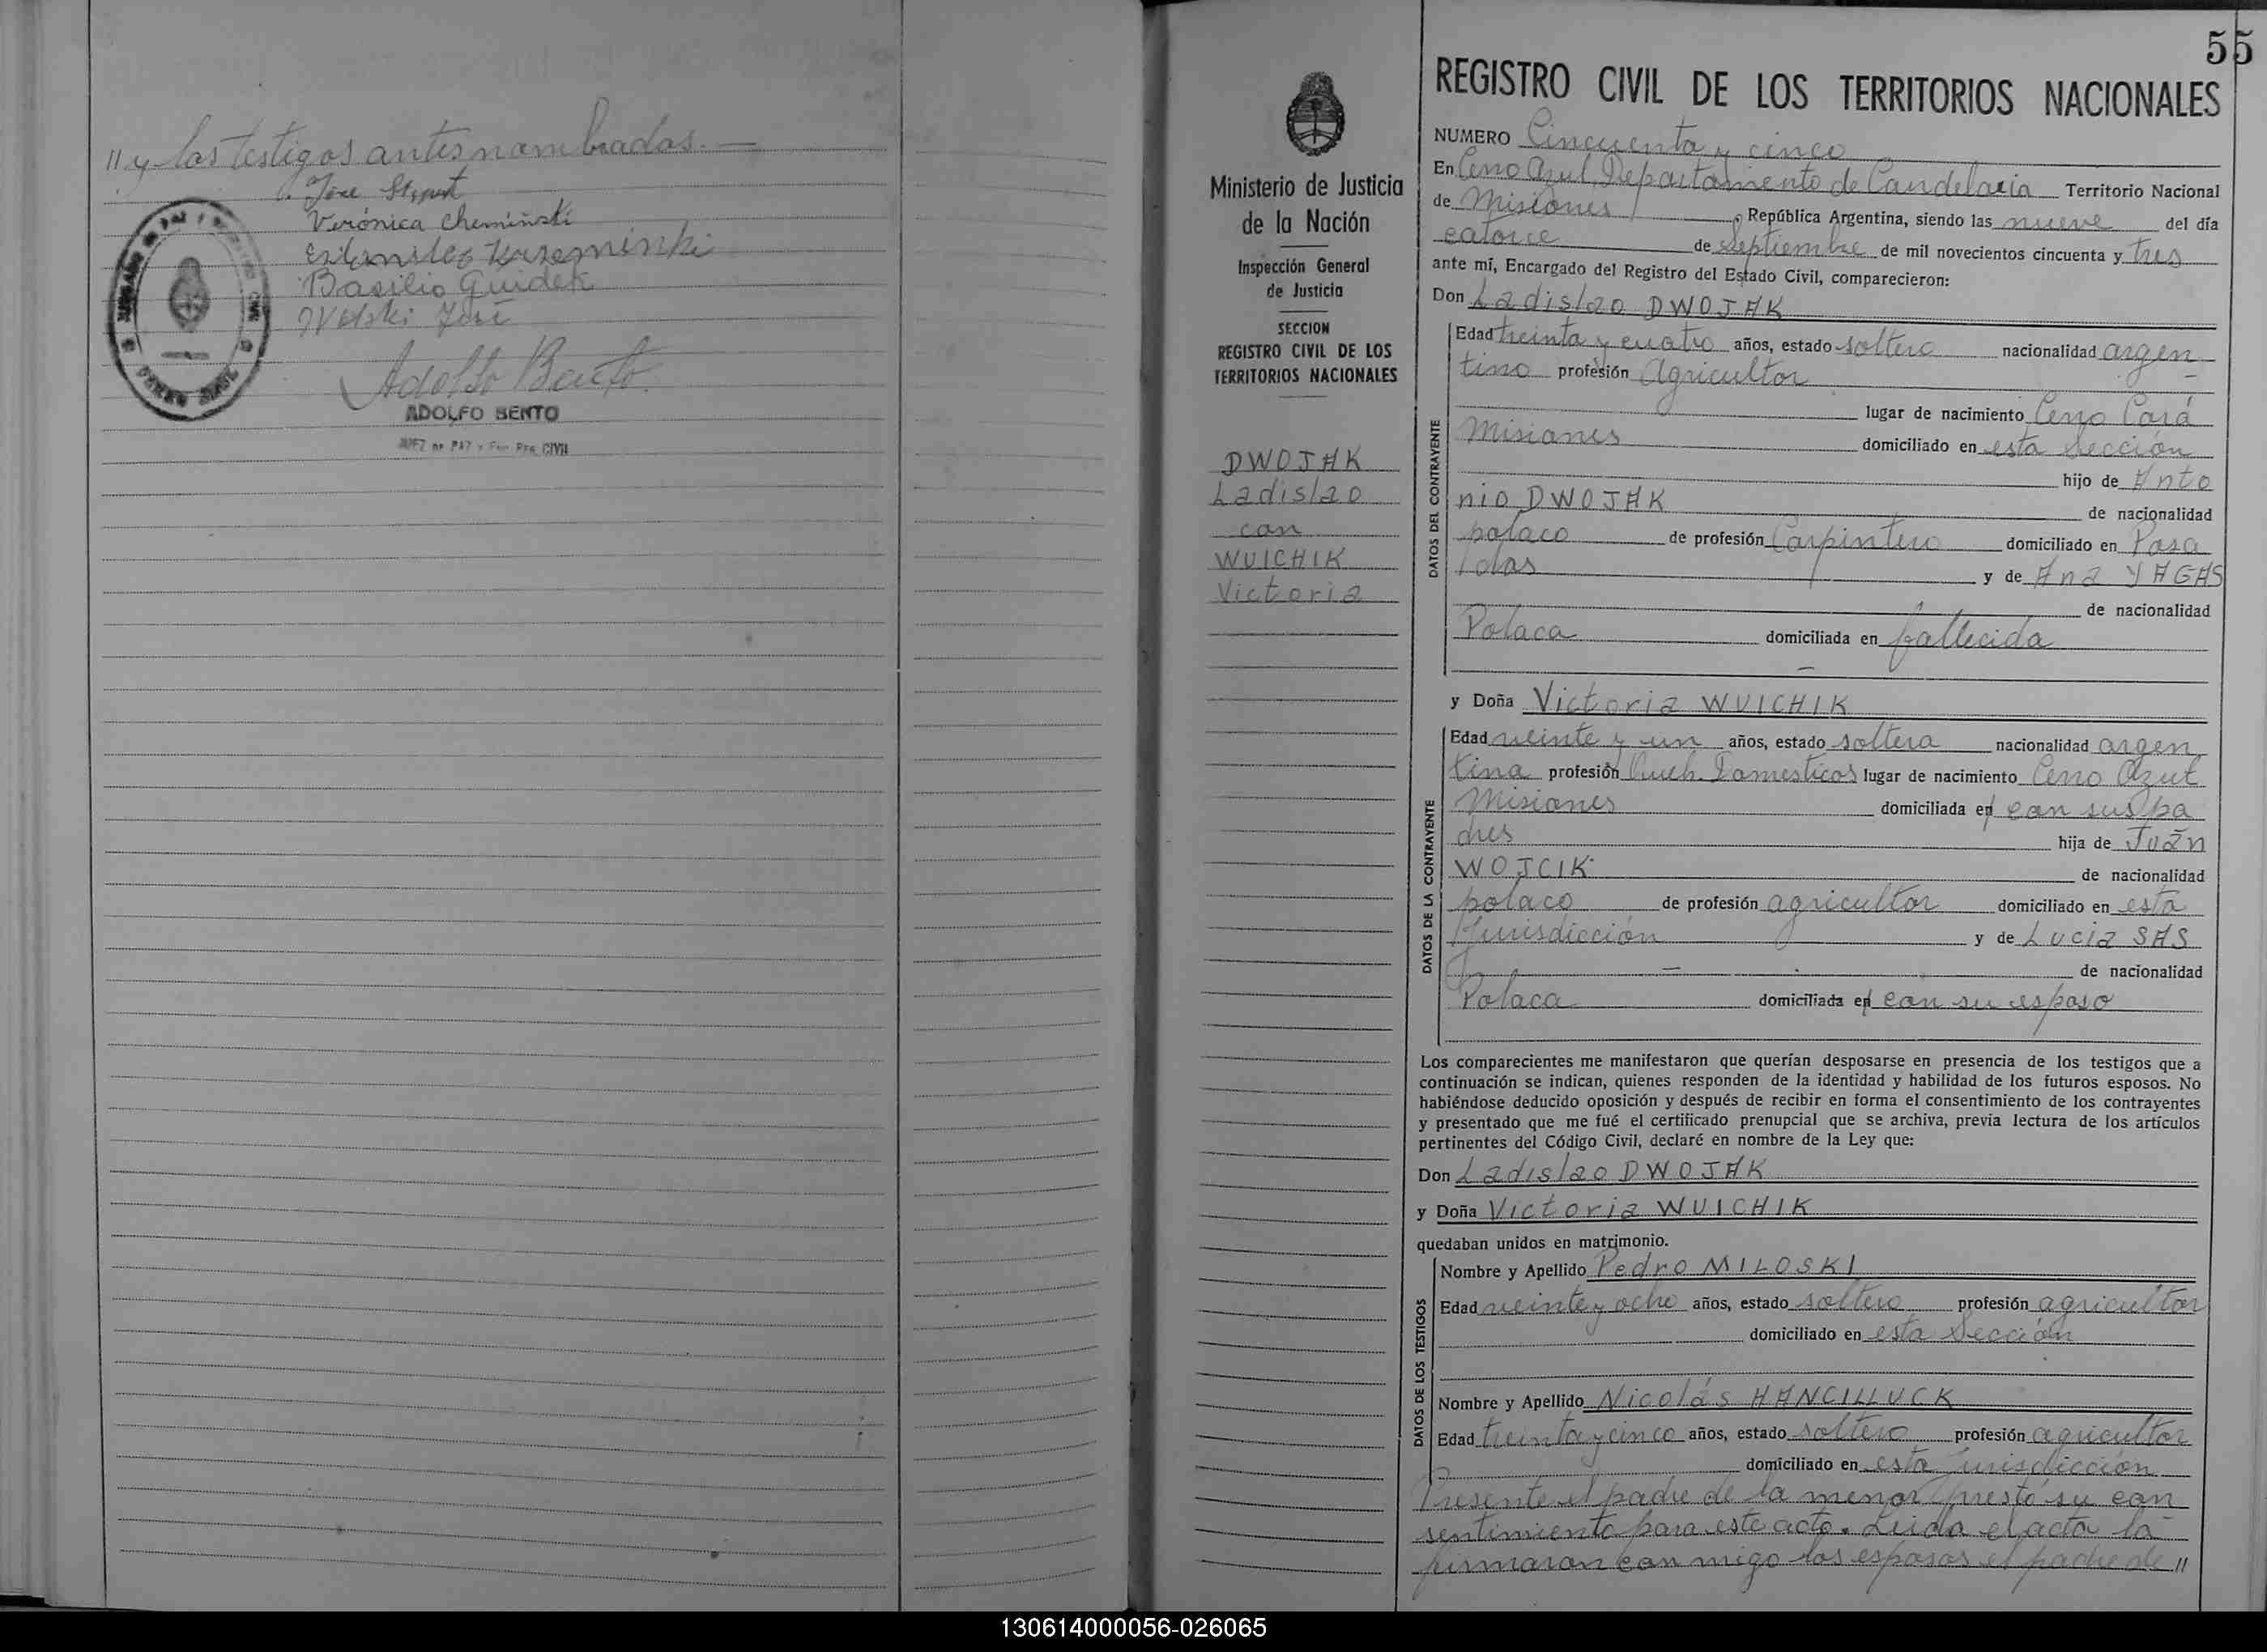 // y los testigos antes nombrados. —
José
Verónica Chemiński
Basilio Guidek
José
Adolfo Bento
ADOLFO BENTO
JUEZ DE PAZ CIVIL
55
REGISTRO CIVIL DE LOS TERRITORIOS NACIONALES
Ministerio de Justicia
de la Nación
Inspección General
de Justicia
SECCION
REGISTRO CIVIL DE LOS
TERRITORIOS NACIONALES
DWOJAK
Ladislao
con
WUICHIK
Victoria
NUMERO Cincuenta y cinco
En Cerro Azul, Departamento de Candelaria Territorio Nacional
de Misiones, República Argentina, siendo las nueve del día
catorce de Septiembre de mil novecientos cincuenta y tres
ante mí, Encargado del Registro del Estado Civil, comparecieron:
Don Ladislao DWOJAK
DATOS DEL CONTRAYENTE
Edad treinta y cuatro años, estado soltero nacionalidad argen-
tino profesión Agricultor
lugar de nacimiento Cerro Corá
Misiones domiciliado en esta Sección
hijo de Anto
nio DWOJAK de nacionalidad
polaco de profesión Carpintero domiciliado en Posa
das y de Ana YAGAS
de nacionalidad
Polaca domiciliada en fallecida
y Doña Victoria WUICHIK
DATOS DE LA CONTRAYENTE
Edad veinte y un años, estado soltera nacionalidad argen
tina profesión Queh. Domesticos lugar de nacimiento Cerro Azul
Misiones domiciliada en con sus pa
dres hija de Juan
WOJCIK de nacionalidad
polaco de profesión agricultor domiciliado en esta
Jurisdicción y de Lucia SAS
de nacionalidad
Polaca domiciliada en con su esposo
Los comparecientes me manifestaron que querían desposarse en presencia de los testigos que a
continuación se indican, quienes responden de la identidad y habilidad de los futuros esposos. No
habiéndose deducido oposición y después de recibir en forma el consentimiento de los contrayentes
y presentado que me fué el certificado prenupcial que se archiva, previa lectura de los artículos
pertinentes del Código Civil, declaré en nombre de la Ley que:
Don Ladislao DWOJAK
y Doña Victoria WUICHIK
quedaban unidos en matrimonio.
DATOS DE LOS TESTIGOS
Nombre y Apellido Pedro MILOSKI
Edad veinte y ocho años, estado soltero profesión agricultor
domiciliado en esta Sección
Nombre y Apellido Nicolás HANCILLUCK
Edad treinta y cinco años, estado soltero profesión agricultor
domiciliado en esta jurisdicción
Presente el padre de la menor prestó su con
sentimiento para este acto. Leida el acta la
firmaron con migo los esposos el padre de //
130614000056-026065